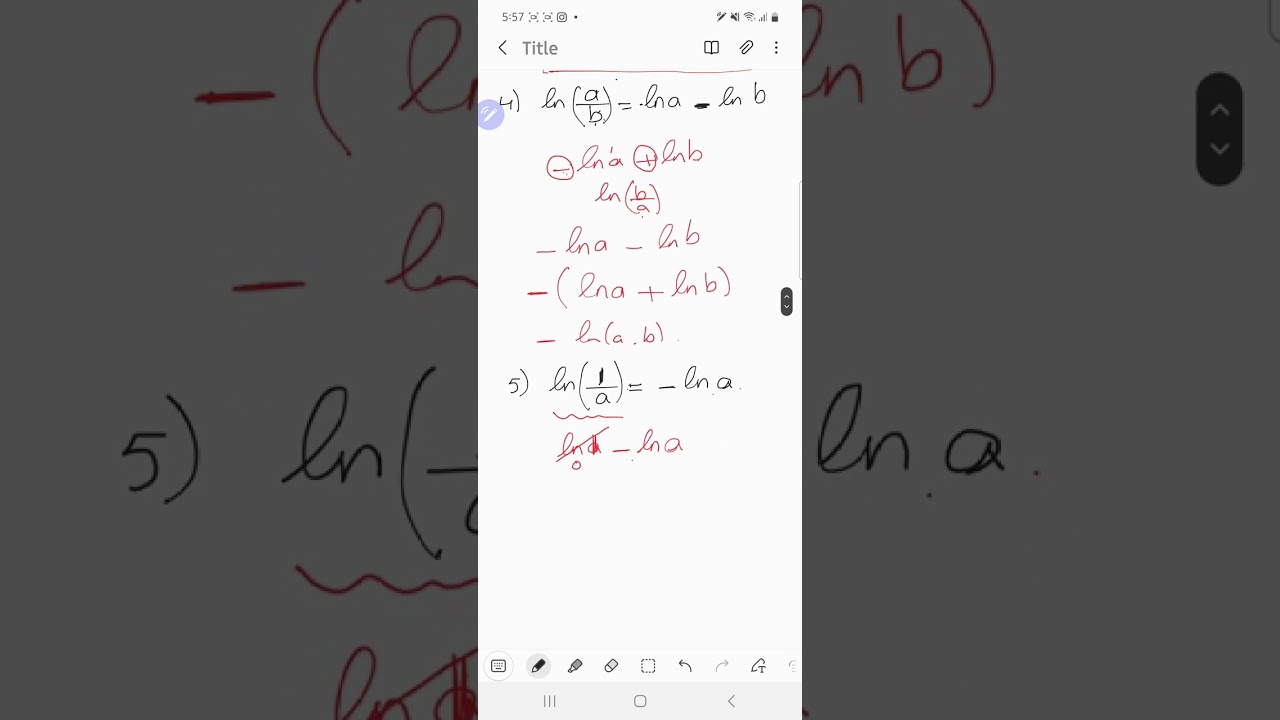 5:57
Title
4) ln(a/b) = lna - ln b
- lna + lnb
ln(b/a)
- lna - lnb
- (lna + lnb)
- ln(a.b).
5) ln(1/a) = - ln a.
ln1 - lna
0